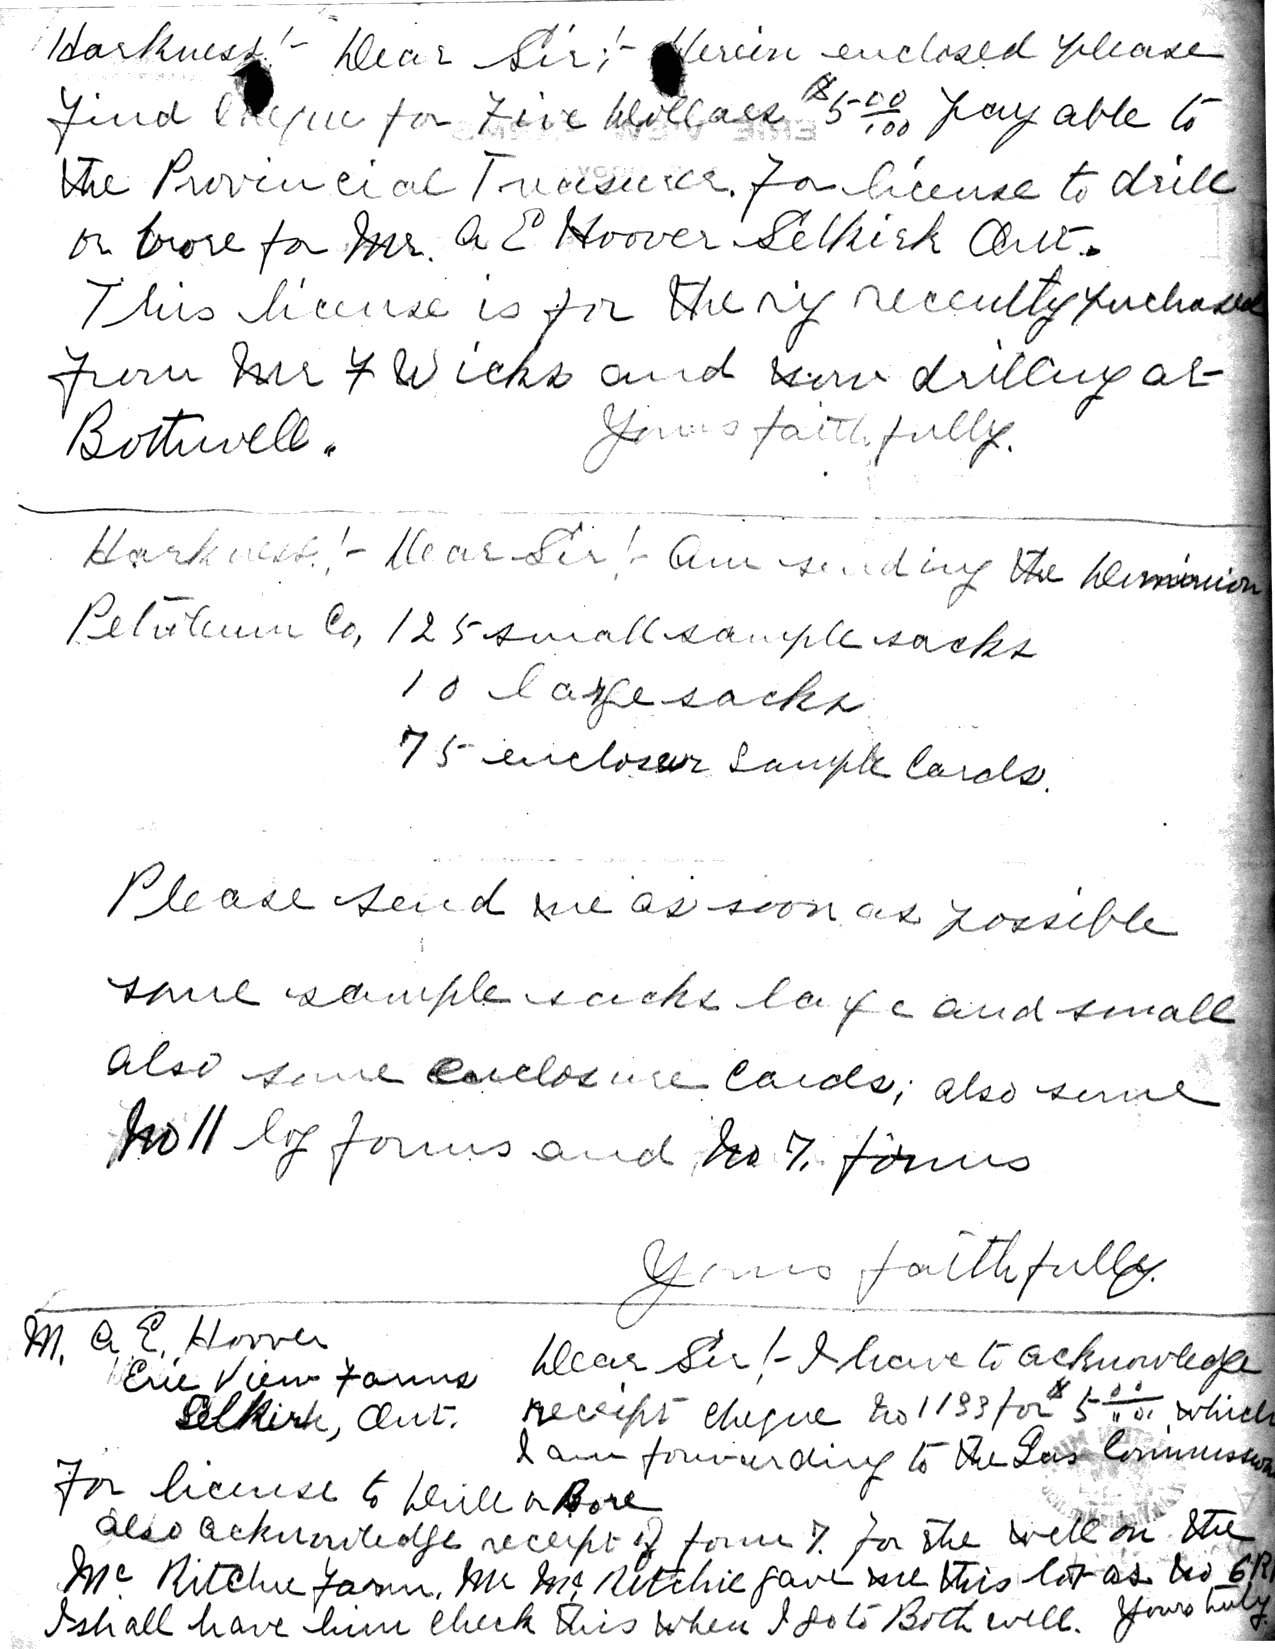 Harkness!- Dear Sir;- Herein enclosed please
find Cheque for Five Dollars $5 00/100 payable to
the Provincial Treasurer. For license to drill
or bore for Mr. A E Hoover Selkirk Ont.
This license is for the rig recently purchased
from Mr F Wicks and now drilling at
Bothwell. Yours faithfully.
Harkness!- Dear Sir!- Am sending the Dominion
Petroleum Co, 125 small sample sacks
10 large sacks
75 enclosur Sample Cards.
Please send me as soon as possible
some sample sacks large and small
also some enclosure Cards; also some
No 11 log forms and No 7. forms
Yours faithfully.
M. A E. Hoover
Erie View Farms
Selkirk, Ont.
Dear Sir!- I have to acknowledge
receipt cheque No 1193 for $5 00/100 which
I am forwarding to the Gas Commission
For license to Drill or Bore
also acknowledge receipt of form 7. for the well on the
Mc Ritchie Farm. Mr Mc Ritchie gave me this lot as No 6
I shall have him check this when I go to Bothwell. Yours truly